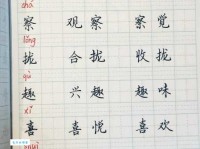 chá
察 观察 察觉
lǒng
拢 合拢 收拢
qù
趣 兴趣 趣味
xǐ
喜 喜悦 喜欢